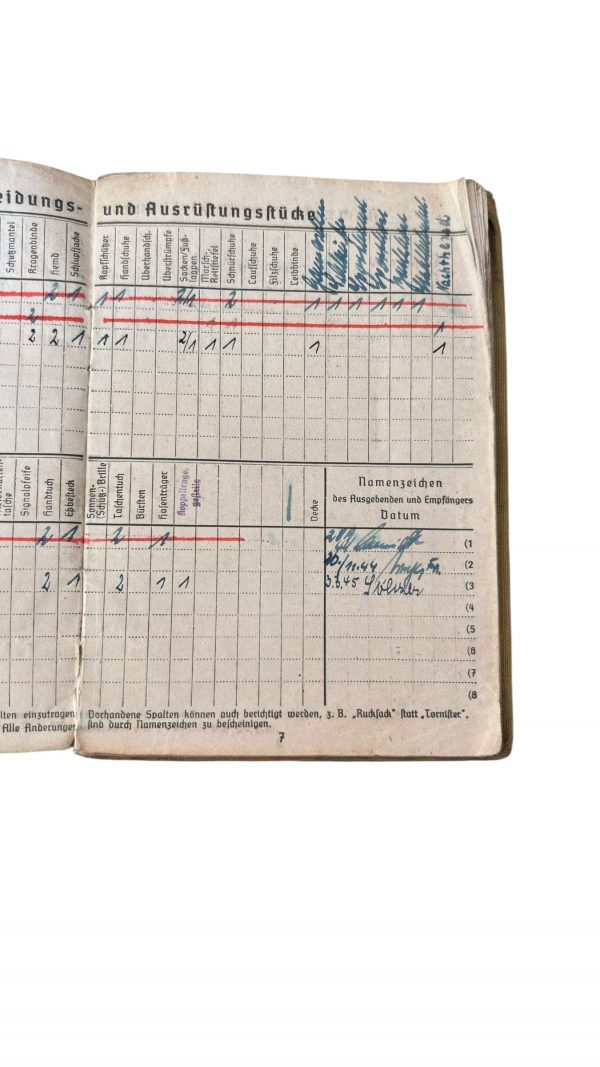 eidungs- und Ausrüstungsstücke
Schutzmantel
Kragenbinde
Hemd
Schlupfjacke
Kopfschützer
Handschuhe
Überhandsch.
Überstrümpfe
Socken/Fuß-
lappen
Marsch-
Reitstiefel
Schnürschuhe
Laufschuhe
Filzschuhe
Leibbinde
Nachthemd
2 1 1 1 2/1 2 1 1 1 1 1 1
2 1
2 2 1 1 1 2/1 1 1 1 1
tasche
Signalpfeife
Handtuch
Eßbesteck
Sonnen-
(Schutz-) Brille
Taschentuch
Bürsten
Hosenträger
Koppeltrage-
gestell
Decke
Namenzeichen
des Ausgebenden und Empfängers
Datum
2 1 2 1
(1
20./11.44
(2
2 1 2 1 1 3.3.45
(3
(4
(5
(6
(7
(8
lten einzutragen Vorhandene Spalten können auch berichtigt werden, z. B. „Rucksack" statt „Tornister",
Alle Änderungen sind durch Namenzeichen zu bescheinigen.
7